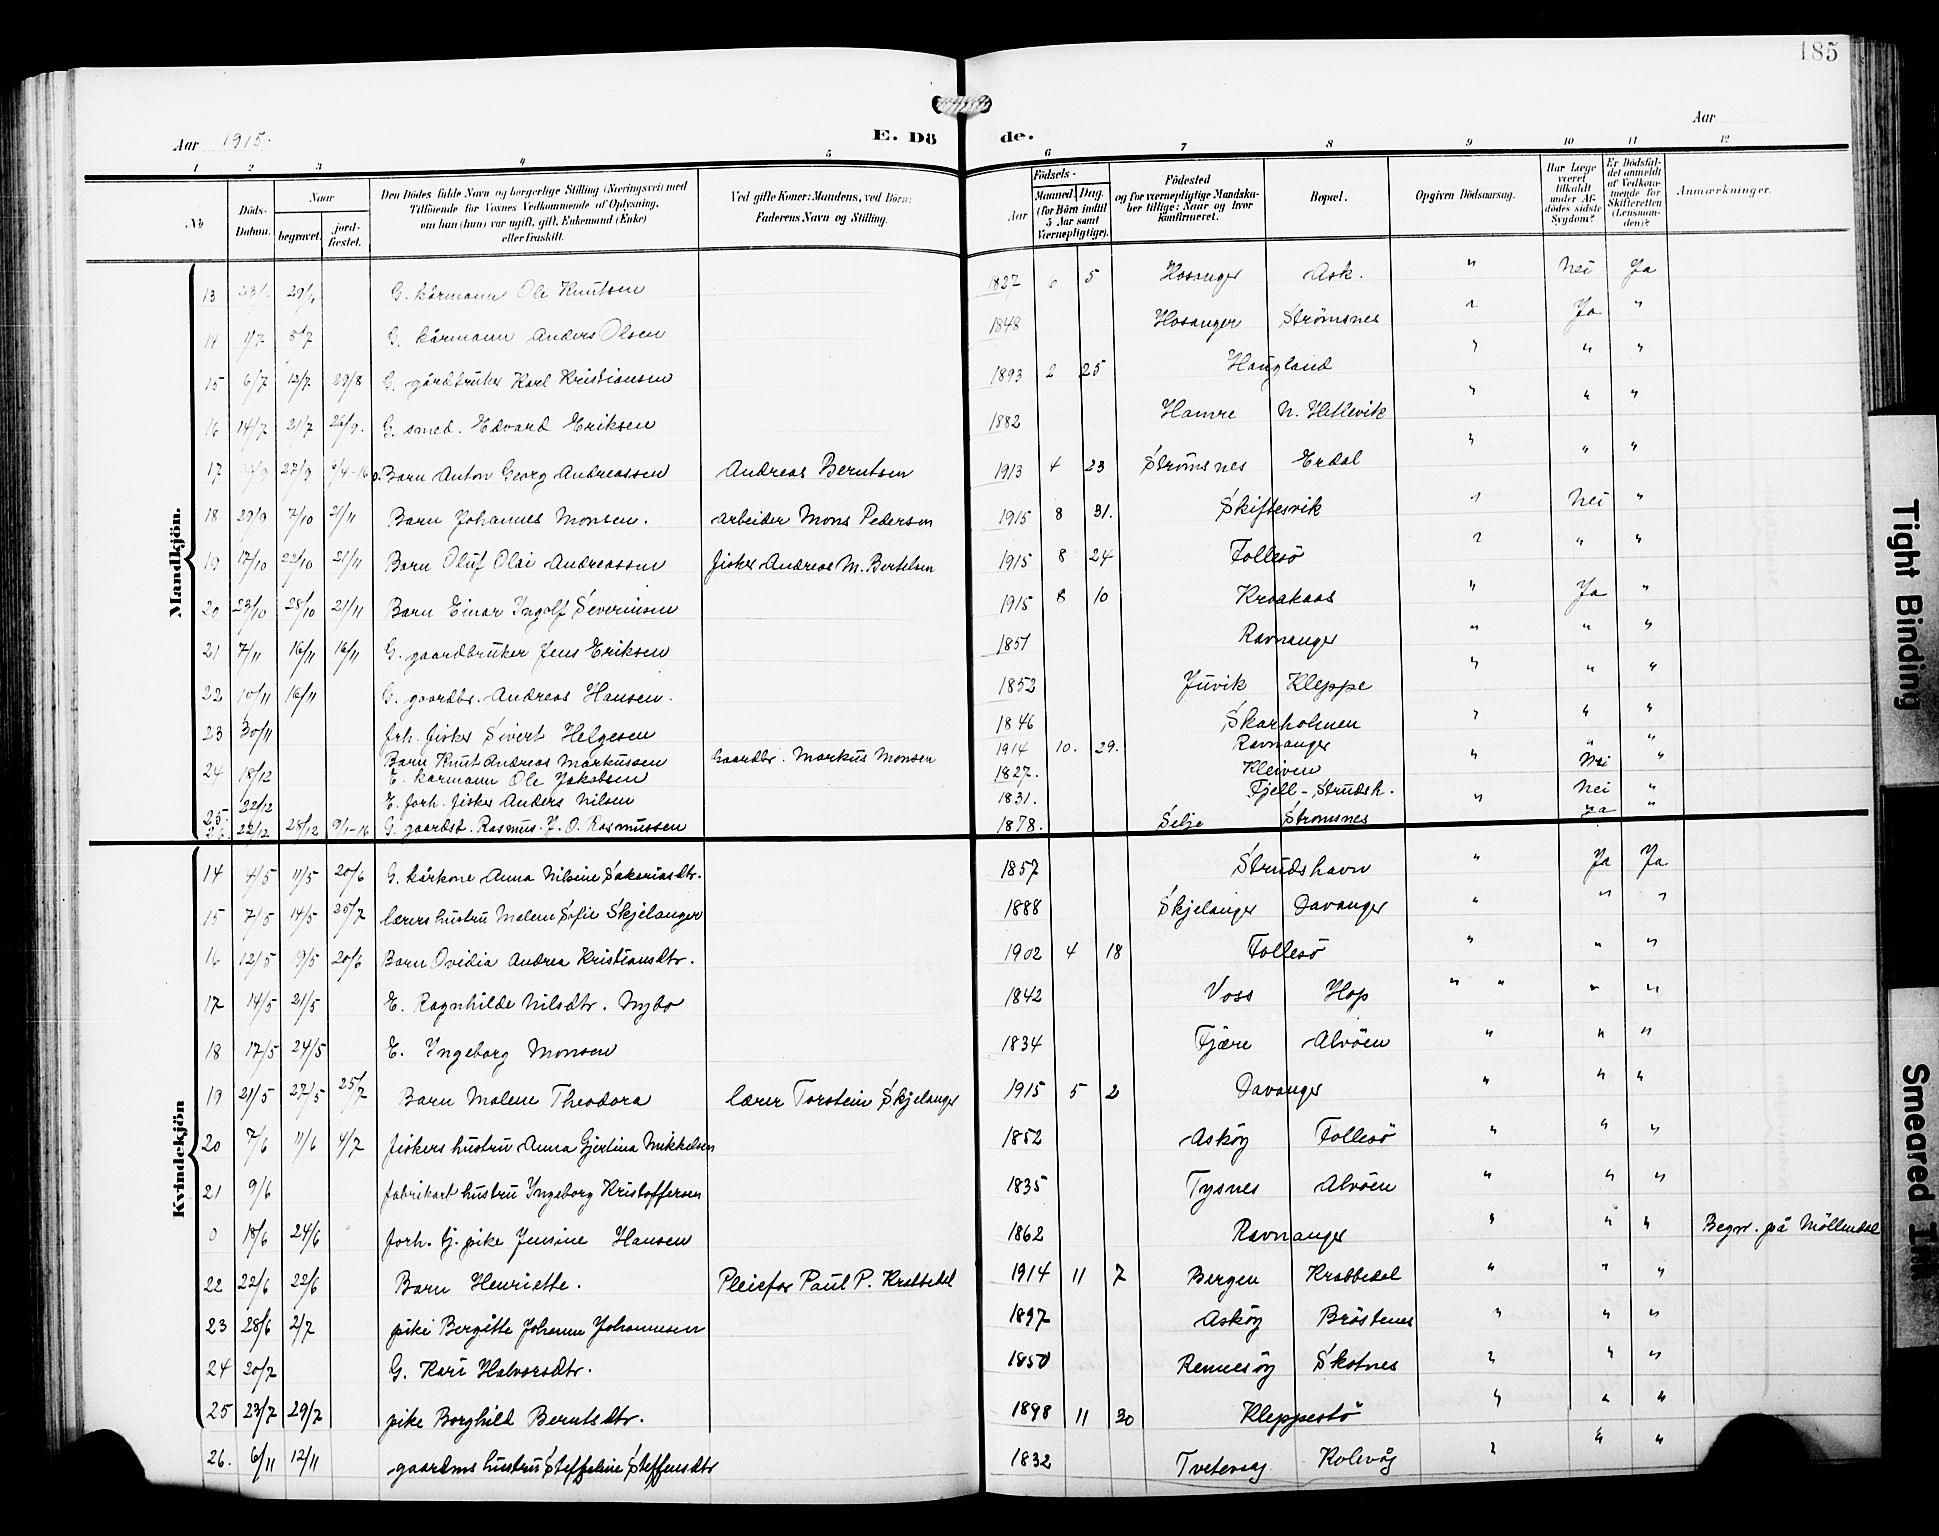 185
Aar 1915. E. Dö de. Aar
1 2 3 4 5 6 7 8 9 10 11 12
No. Döds-Datum. Naar begravet. jordfæstet. Den Dödes fulde Navn og borgerlige Stilling (Næringsvei) med Tilföiende for Voxnes Vedkommende af Oplysning, om han (hun) var ugift, gift, Enkemand (Enke) eller fraskilt. Ved gifte Koner: Mandens, ved Börn: Faderens Navn og Stilling. Födsels- Aar Maaned. Dag. (for Börn indtil 5 Aar samt Værnepligtige). Födested og for værnepligtige Mandskaber tillige: Naar og hvor Konfirmeret. Bopæl. Opgiven Dödsaarsag. Har Læge været tilkaldt under Afdödes sidste Sygdom? Er Dödsfaldet anmeldt af Vedkommende for Skifteretten (Lensmanden)? Anmærkninger.
Mandkjön.
13 29/6 G. kårmann Ole Knutsen 1827 6 5 Hosanger Ask. " Nei Ja
14 1/7 5/7 G. kårmann Anders Olsen 1848 Hosanger Strömsnes " Ja "
15 6/7 12/7 29/8 G. gårdbruker Karl Kristiansen 1893 2 25 Haugland " " "
16 14/7 21/7 26/9. G. smed. Edvard Eriksen 1882 Hamre N. Hetlevik " " "
17 27/9 9/4-16 Barn Anton Georg Andreassen Andreas Berntsen 1913 4 23 Strömsnes Erdal " " "
18 29/9 7/10 21/11 Barn Johannes Monsen. arbeider Mons Pedersen 1915 8 31. Skiftesvik " Nei "
19 17/10 22/10 21/11 Barn Oluf Olai Andreassen fisker Andreas M. Bertelsen 1915 8 24 Follesö " " "
20 23/10 28/10 21/11 Barn Einar Ingolf Severinsen 1915 8 10 Kraakaas " Ja "
21 7/11 16/11 16/11 G. gaardbruker Jens Eriksen 1851 Ravnanger " " "
22 10/11 16/11 G. gaardbr. Andreas Hansen. 1852 Juvik Kleppe " " "
23 30/11 forh. fisker Sivert Helgesen 1846 Skarholmen " " "
Barn Knut Andreas Markussen Gaardbr. Markus Monsen 1914 10. 29. Ravnanger " "
24 18/12 E. kårmann Ole Jakobsen 1827. Kleiven " Nei "
22/12 E. forh. fisker Anders Nilsen 1831. Fjell - Strudsh. Nei "
25. 22/12 28/12 9/1-16 G. gaardst. Rasmus. J. O. Rasmussen 1878. Selje Strömsnes " Ja "
Kvindekjön
14 4/5 11/5 20/6 G. kårkone Anna Nilsine Sakariasdtr. 1857 Strudshavn " Ja Ja
15 7/5 14/5 25/7 lærers hustru Malene Sofie Skjelanger 1888 Skjelanger Davanger " " "
16 12/5 19/5 20/6 Barn Ovidia Andrea Kristiansdtr. 1902 4 18 Follesö " " "
17 14/5 21/5 E. Ragnhilde Nilsdtr. Nybo 1842 Voss Hop " " " "
18 17/5 24/5 E. Ingeborg Monsen 1834 Fjære Alvöen " " "
19 21/5 27/5 25/7 Barn Malene Theodora lærer Torstein Skjelanger 1915 5 2 Davanger " " "
20 7/6 11/6 4/7 fiskers hustru Anna Gjertina Mikkelsen 1852 Asköy Follesö " " "
21 9/6 fabrikarb hustru Ingeborg Kristoffersen 1835 Tysnes Alvöen " " "
0 18/6 24/6 forh. tj. pike Jensine Hansen 1862 Ravnanger " " " Begr. på Möllendal
22 22/6 22/6 Barn Henriette. Pleiefar Paul P. Krabbedal 1914 11 7 Bergen Krabbedal " " "
23 28/6 2/7 pike Bergitte Johanne Johannesen 1897 Asköy Bröstenes " " "
24 20/7 G. Kari Halvorsdtr. 1850 Rennesöy Skotnes " " "
25 23/7 29/7 pike Borghild Berntsdtr. 1898 11 30 Kleppestö " " "
26. 6/11 12/11 gaardms hustru Steffeline Steffensdtr 1832 Tveteraag Rolevåg " " "
Tight Binding
Smeared Ink